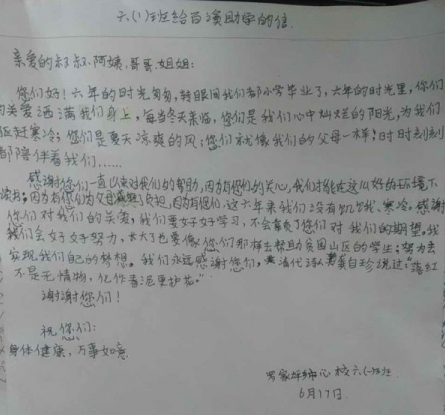 六(1)班给百滴助学的信
亲爱的叔叔、阿姨、哥哥、姐姐:
您们好!六年的时光匆匆,转眼间我们都小学毕业了,六年的时光里,你们
的关爱洒满我们身上,每当冬天来临,您们是我们心中灿烂的阳光,为我们
驱赶寒冷;您们是夏天凉爽的风;您们就像我们的父母一样,时时刻刻
都陪伴着我们……
感谢你们一直以来对我们的帮助,因为有您们的关心,我们才能在这么好的环境下
读书;因为有您们为父母减轻了负担,因为有您们,这六年来我们没有饥饿、寒冷。感谢
你们对我们的关爱,我们要好好学习,不会辜负了您们对我们的期望。我
我们会好好努力,长大了也要像您们那样去帮助贫困山区的学生;努力去
实现我们自己的梦想。我们永远感谢您们,清代诗人龚自珍说过:"落红
不是无情物,化作春泥更护花。"
谢谢您们!
祝您们:
身体健康,万事如意
罗家坪 心校六(一)班
6月17日